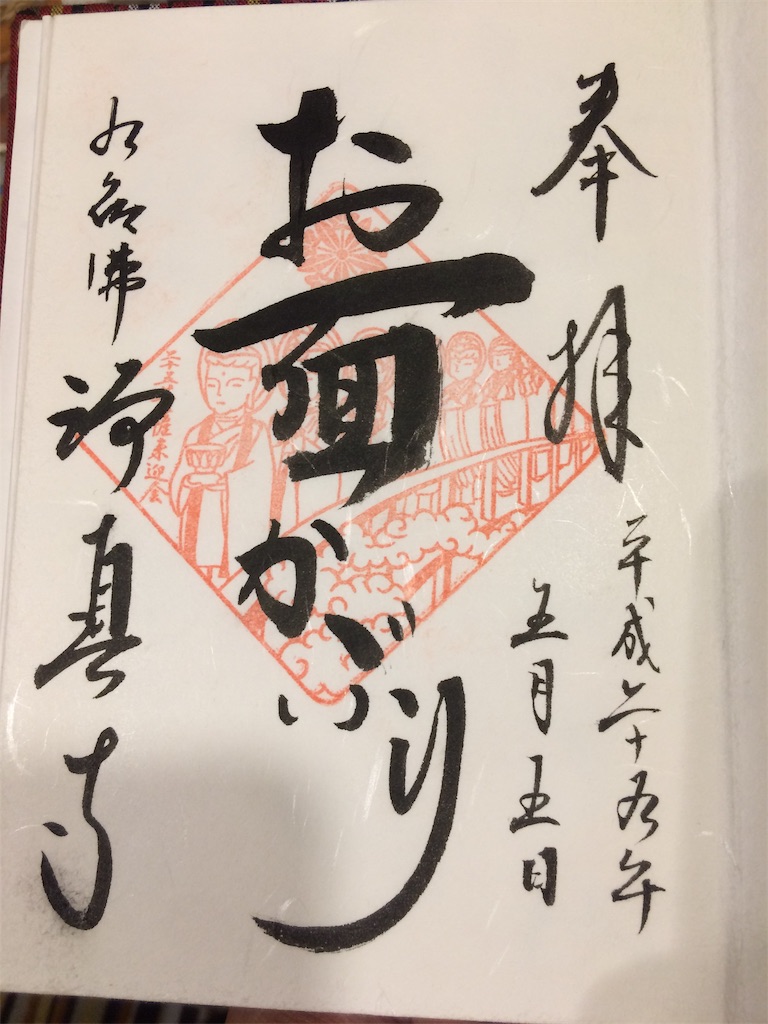 奉拝
平成二十五年
五月五日
お面かぶり
二十五菩薩来迎会
九品佛
浄真寺